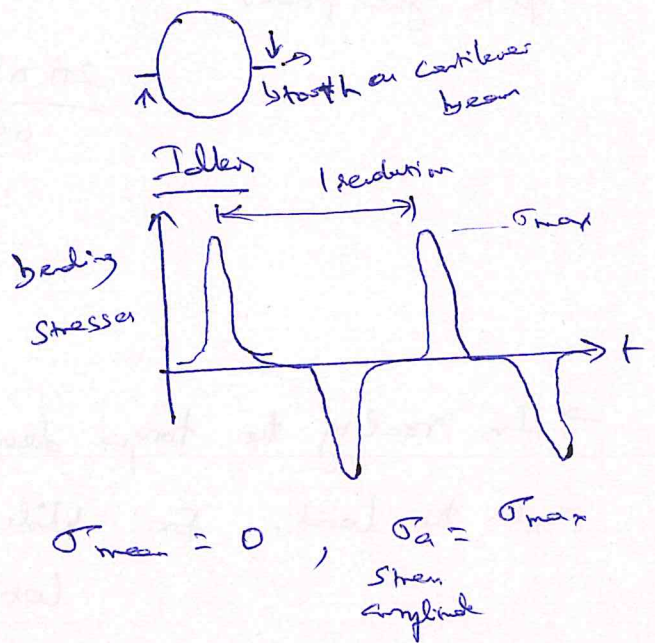 tooth as cantilever
beam
Idlers
1 revolution
σmax
bending
stresses
t
σmean = 0 , σa = σmax
stress
amplitude